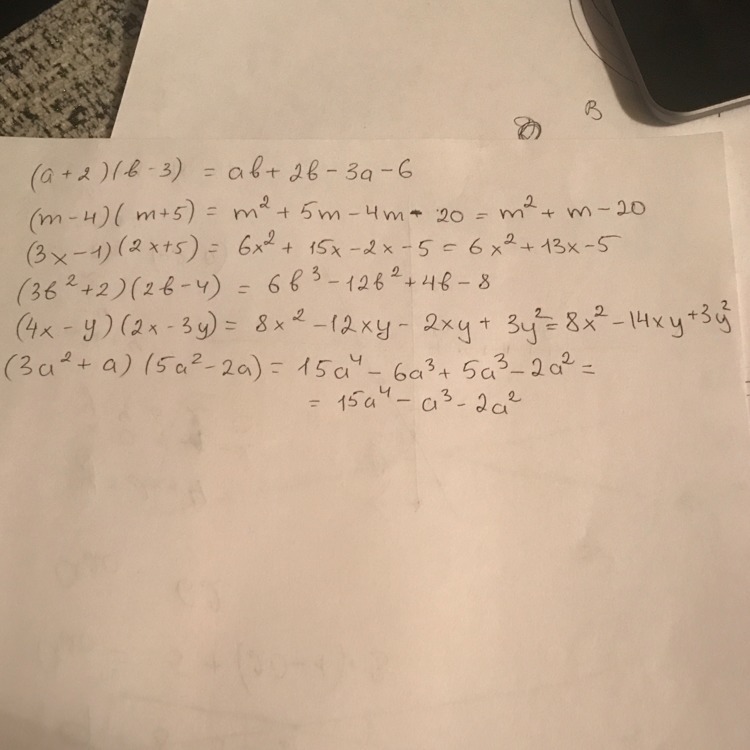 В
(a+2)(b-3) = ab+2b-3a-6
(m-4)(m+5) = m²+5m-4m-20 = m²+m-20
(3x-1)(2x+5) = 6x²+15x-2x-5 = 6x²+13x-5
(3b²+2)(2b-4) = 6b³-12b²+4b-8
(4x-y)(2x-3y) = 8x²-12xy-2xy+3y² = 8x²-14xy+3y²
(3a²+a)(5a²-2a) = 15a⁴-6a³+5a³-2a² =
= 15a⁴-a³-2a²